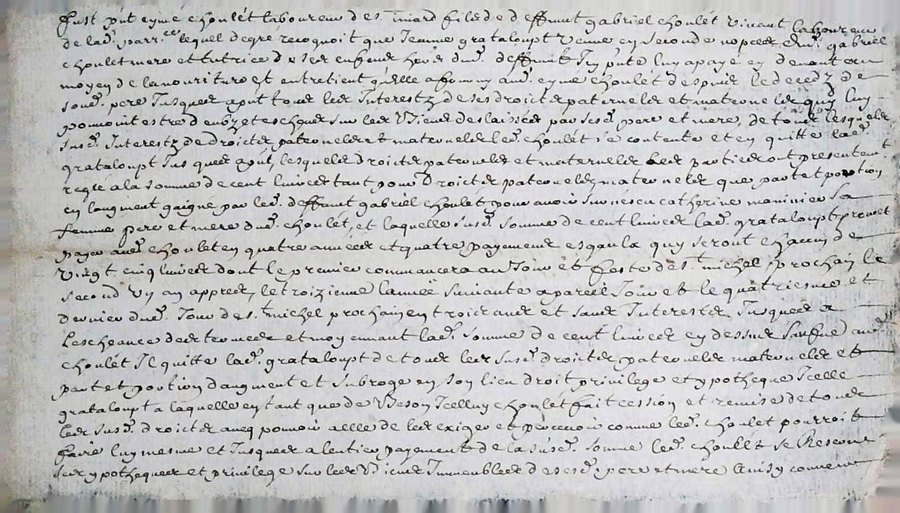 fust p'nt eymé choulét laboureur de st. miard filz de deffunt gabriel choulét vivant laboureur
de lad. parr.ce lequel degre recognoit que Jeanne grataloupt veuve en seconde nopces dud. gabriel
choulet mere et tutrice de ses enfans heus dud. deffunt luy a payé en denont au
moyen de la nouriture et entretient qu'elle a fourny aud. eymé choulét despuis le decedz de
soud. pere Jusques a pnt tous les Interestz de ses droictz paternels et maternels quy luy
pouvoint estre deubz et escheus sur les biens delaissés par ses d. pere et mere, de tous lesquels
susd. Interestz de droictz paternels et maternels led. choulét se contente et en quitte lad.
grataloupt Jusques a pnt, lesquels droictz paternels et maternels les parties ont presentement
regle a la somme de cent livres tant pour droictz paternels maternels que part et portion
en laugment gaigné par led. deffunt gabriel choulet pour avoir survescu catherine maninier sa
femme pere et mere dud. choulét, et laquelle susd. somme de cent livres lad. grataloupt promet
payer aud. choulet en quatre années et quatre payements esgaux quy seront chacun de
vingt cinq livres dont le premier commancera au Jour et feste de st. michel prochain le
second un an apprés, le troizienne lannée suivante a pareil Jour et le quatriesme et
dernier dud. Jour de st. michel prochain en trois ans et sans Interestz Jusques a
lescheance des termes et moyennant lad. somme de cent livres en dessus aud.
choulét Il quitte lad. grataloupt de tous les susd. droictz paternels maternels et
part et portion daugment et subroge en son lieu droit privilege et ypotheque Icelle
grataloupt a laquelle en tant que de besoin Icelluy choulet fait cession et remise de tous
les susd. droictz avec pouvoir a elle de les exiger et percevoir comme led. choulet pourroit
faire luy mesme et Jusques a lentier payement de la susd. somme led. choulet se Reserve
son ypotheque et privilege sur les biens Immeubles de sesd. pere et mere Ainsy convenu